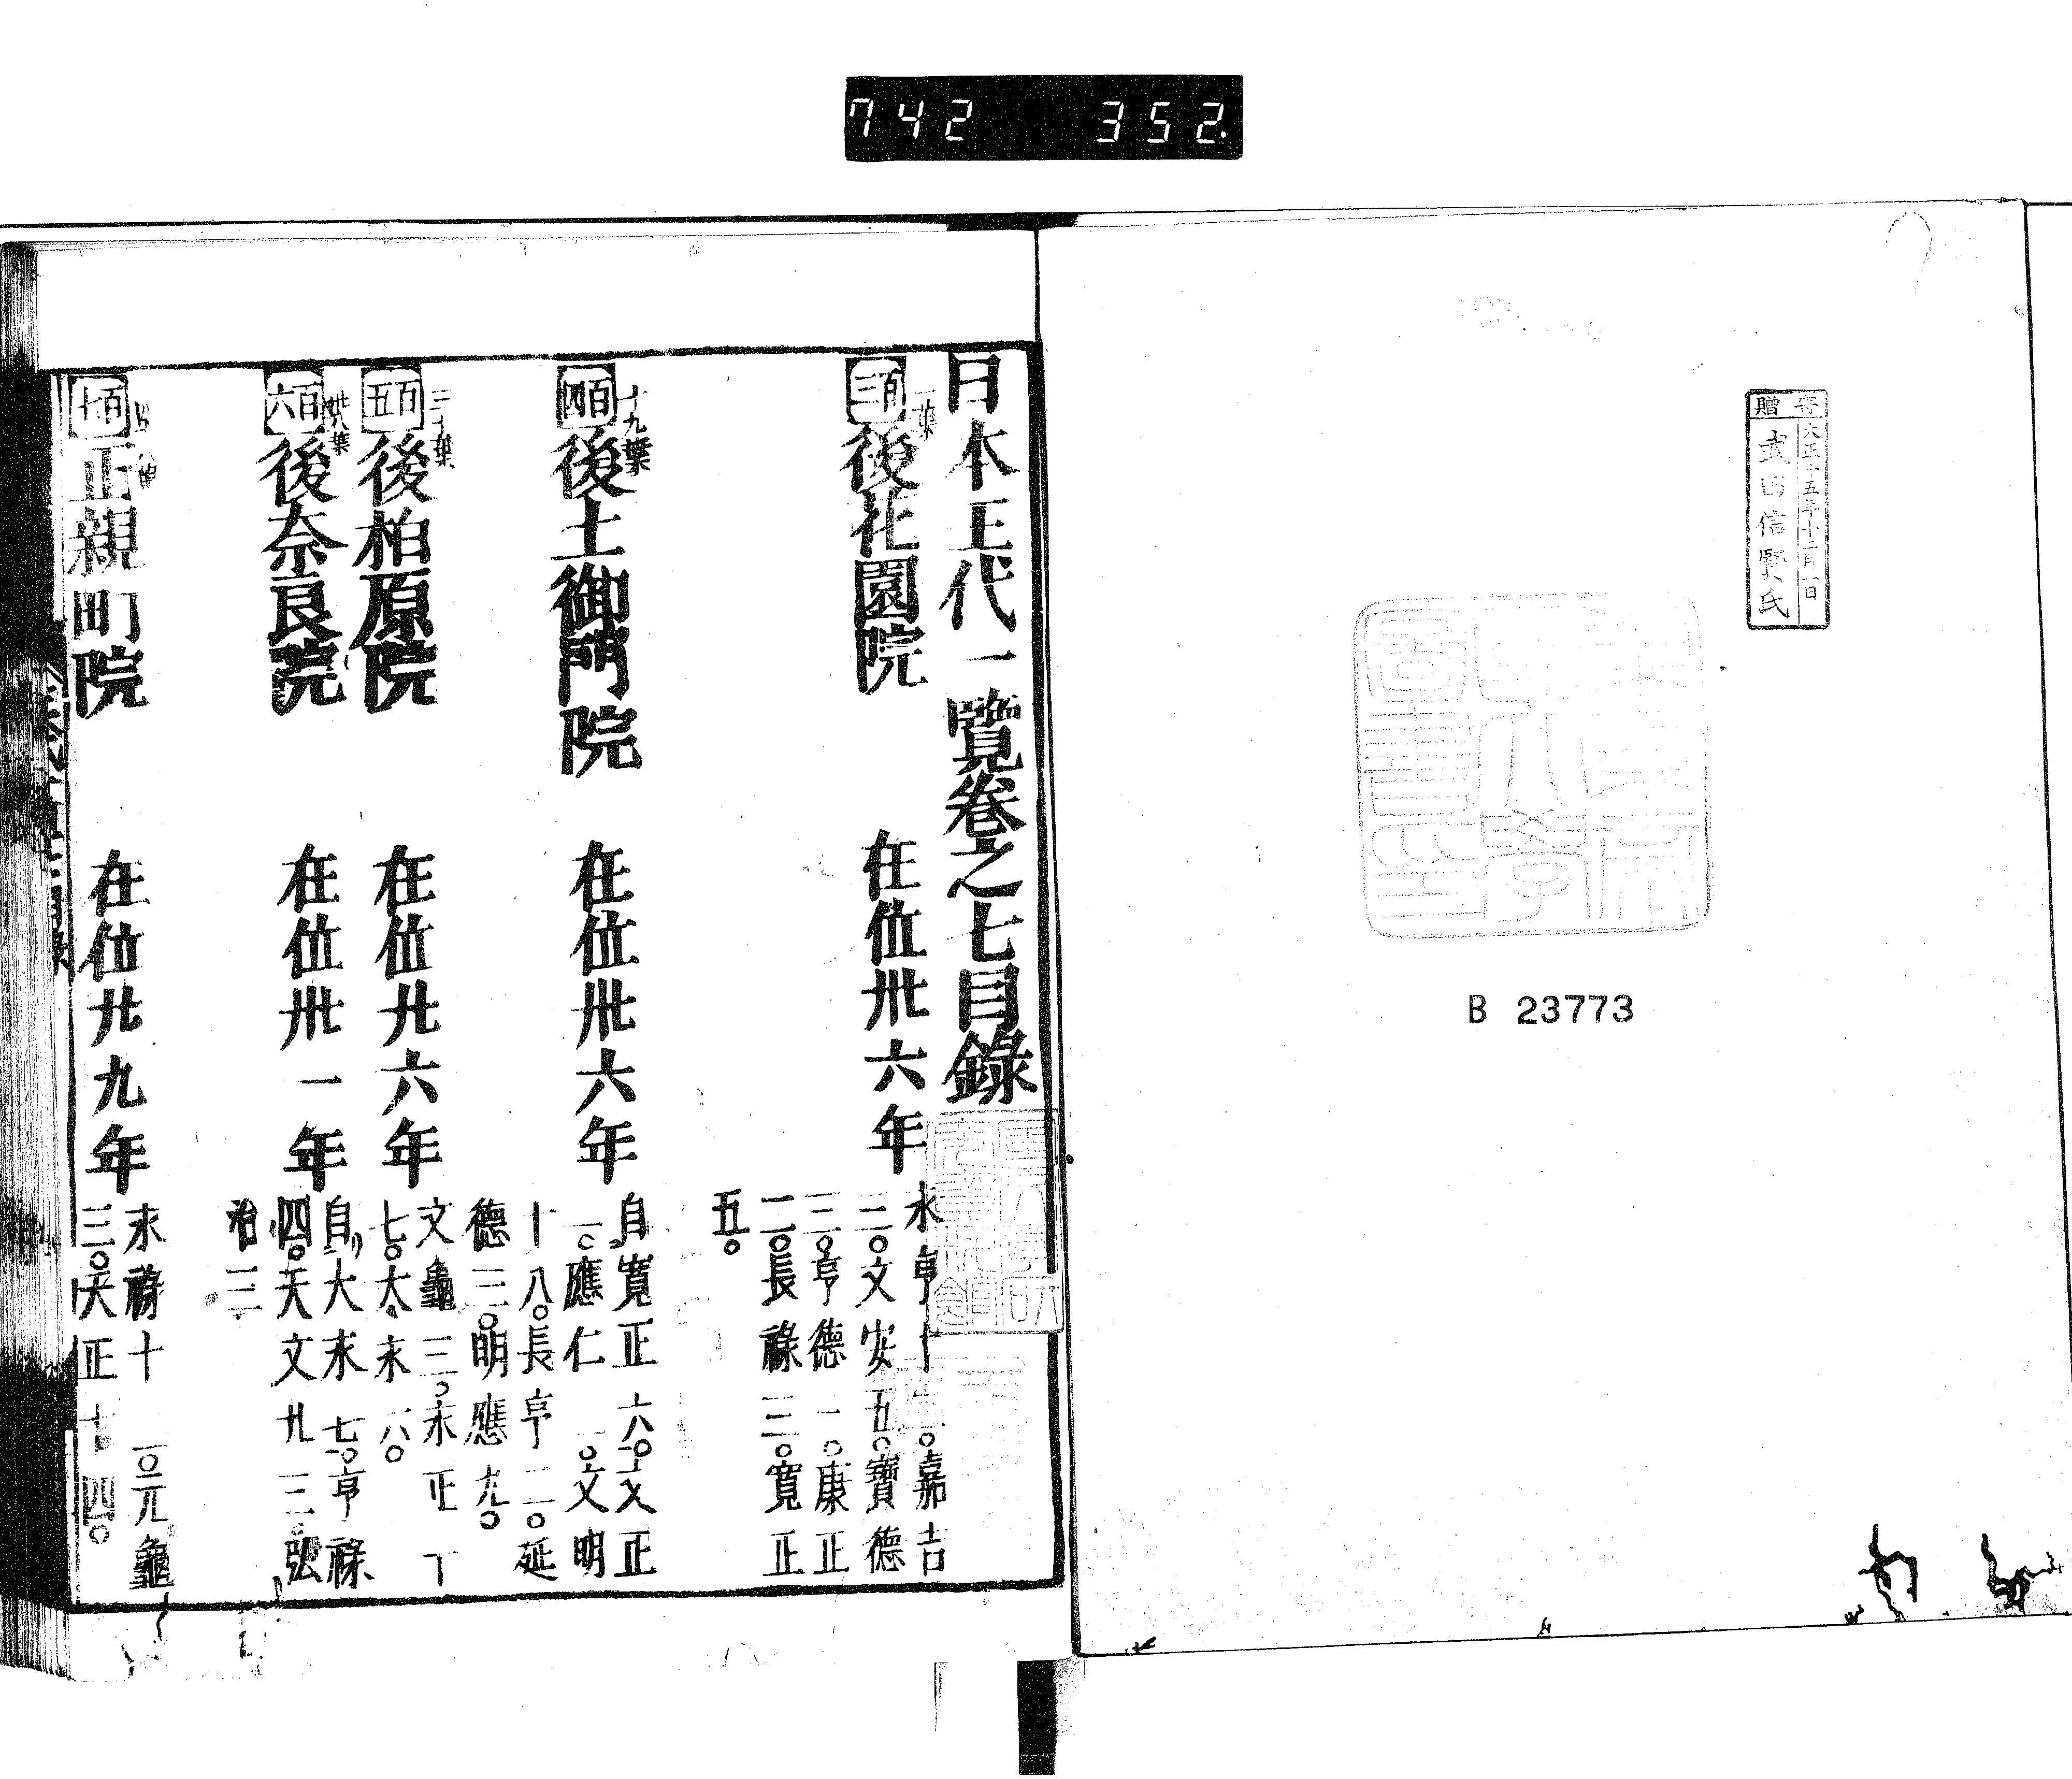 742 352
寄贈
大正十五年十二月一日
武田信賢氏
B 23773
日本王代一覽卷之七目錄
一葉
百三 後花園院 在位卅六年
永享十二○嘉吉
三○文安五○寶德
三○享德三○康正
二○長祿三○寬正
五○
十九葉
百四 後土御門院 在位卅六年
自寬正六○文正
一○應仁二○文明
十八○長享二○延
德三○明應九○
三十葉
百五 後柏原院 在位廿六年
文龜三○永正十
七○大永六○
卅八葉
百六 後奈良院 在位卅一年
自大永七○亨祿
四○天文廿三○弘
治三
百七 正親町院 在位廿九年
永祿十二○元龜
三○天正十四○